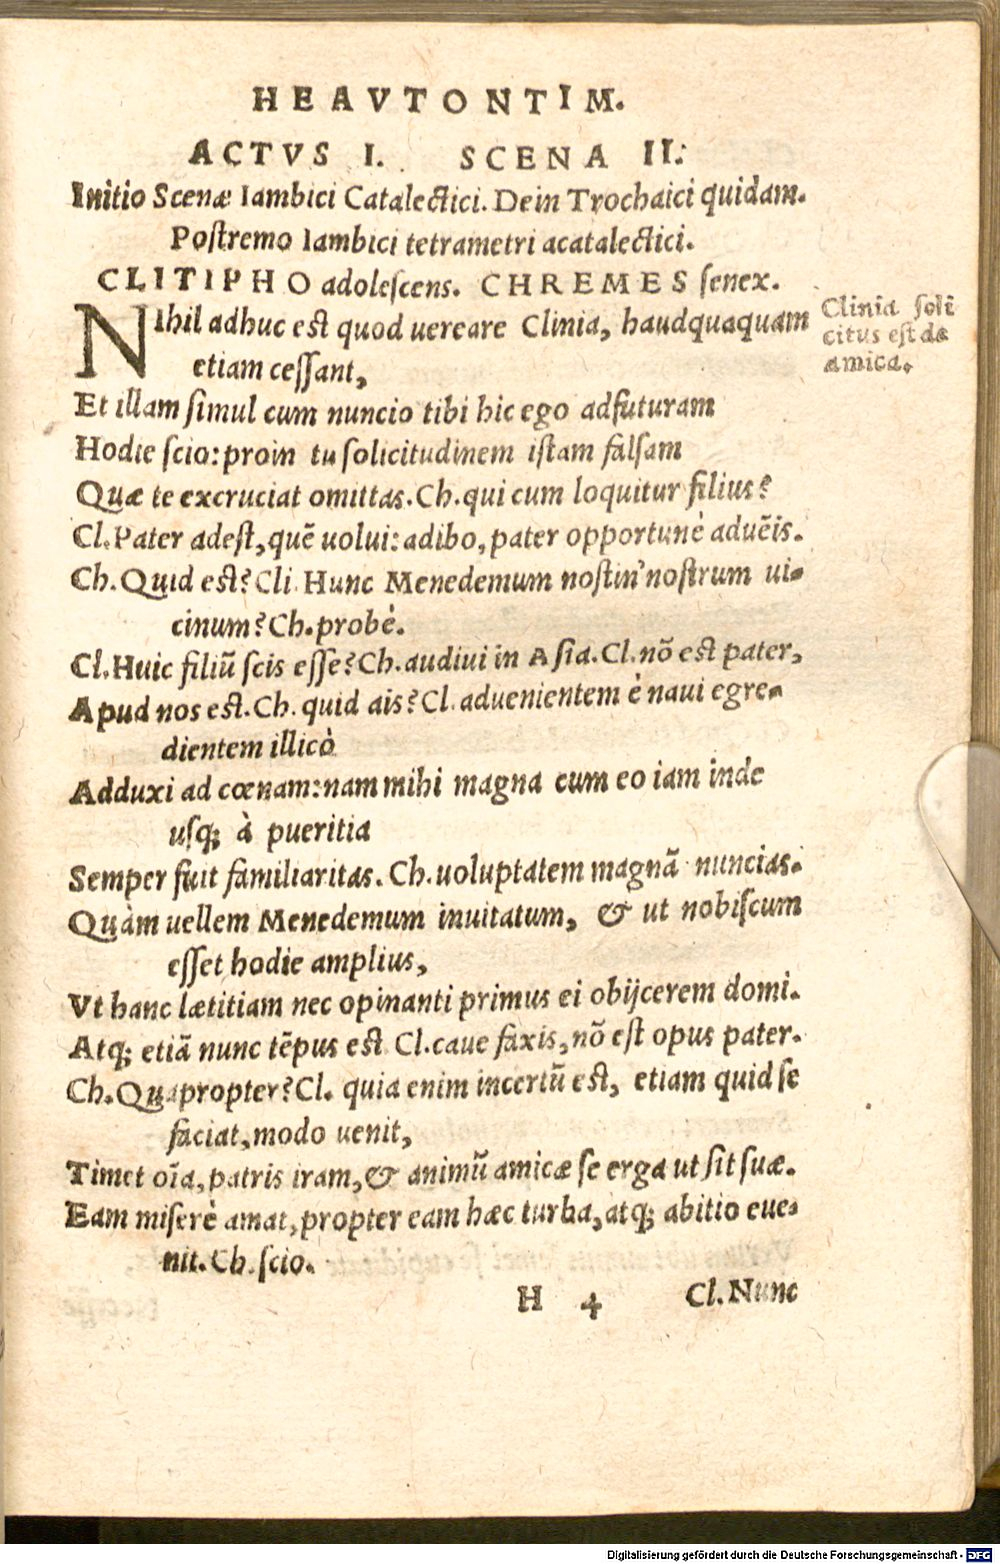 HEAVTONTIM.
ACTVS I. SCENA II.
Initio Scenæ Iambici Catalectici. Dein Trochaici quidam.
Postremo Iambici tetrametri acatalectici.
CLITIPHO adolescens. CHREMES senex.
NIhil adhuc est quod uereare Clinia, haudquaquam
etiam cessant,
Clinia soli
citus est de
amica.
Et illam simul cum nuncio tibi hic ego adfuturam
Hodie scio: proin tu solicitudinem istam falsam
Quæ te excruciat omittas. Ch. qui cum loquitur filius?
Cl. Pater adest, quẽ uolui: adibo, pater opportunè aduẽis.
Ch. Quid est? Cli. Hunc Menedemum nostin' nostrum ui-
cinum? Ch. probè.
Cl. Huic filiũ scis esse? Ch. audiui in Asia. Cl. nõ est pater,
Apud nos est. Ch. quid ais? Cl. aduenientem è naui egre-
dientem illicò
Adduxi ad cœnam: nam mihi magna cum eo iam inde
usq; à pueritia
Semper fuit familiaritas. Ch. uoluptatem magnã nuncias.
Quàm uellem Menedemum inuitatum, & ut nobiscum
esset hodie amplius,
Vt hanc lætitiam nec opinanti primus ei obijcerem domi.
Atq; etiã nunc tẽpus est Cl. caue faxis, nõ est opus pater.
Ch. Quapropter? Cl. quia enim incertũ est, etiam quid se
faciat, modo uenit,
Timet oĩa, patris iram, & animũ amicæ se erga ut sit suæ.
Eam miserè amat, propter eam hæc turba, atq; abitio eue-
nit. Ch. scio.
H 4 Cl. Nunc
Digitalisierung gefördert durch die Deutsche Forschungsgemeinschaft - DFG